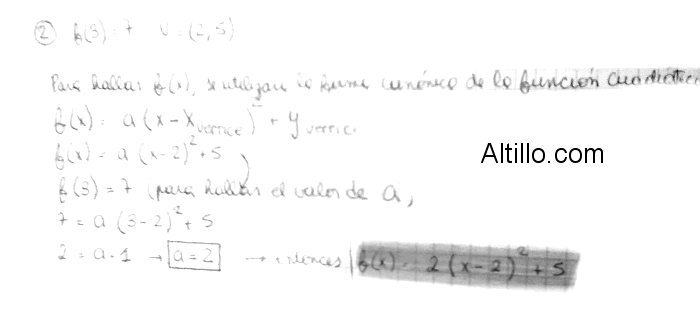 ② f(3) = 7 V = (2,5)
Para hallar f(x), se utilizara la forma canónica de la función cuadrática
f(x) = a (x - x vertice)² + y vertice
f(x) = a (x-2)² + 5
f(3) = 7 (para hallar el valor de a)
7 = a (3-2)² + 5
2 = a · 1 → a = 2 → entonces f(x) = 2 (x-2)² + 5
Altillo.com